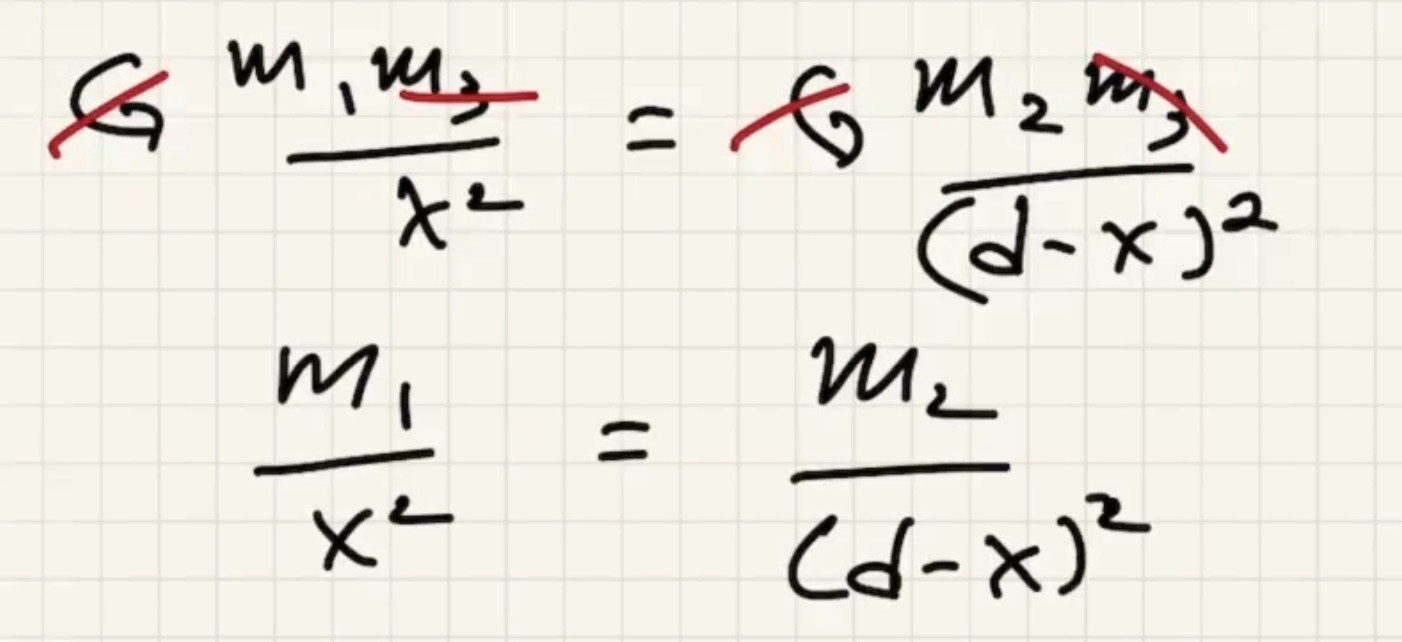 G m₁m₃/x² = G m₂m₃/(d-x)²
m₁/x² = m₂/(d-x)²